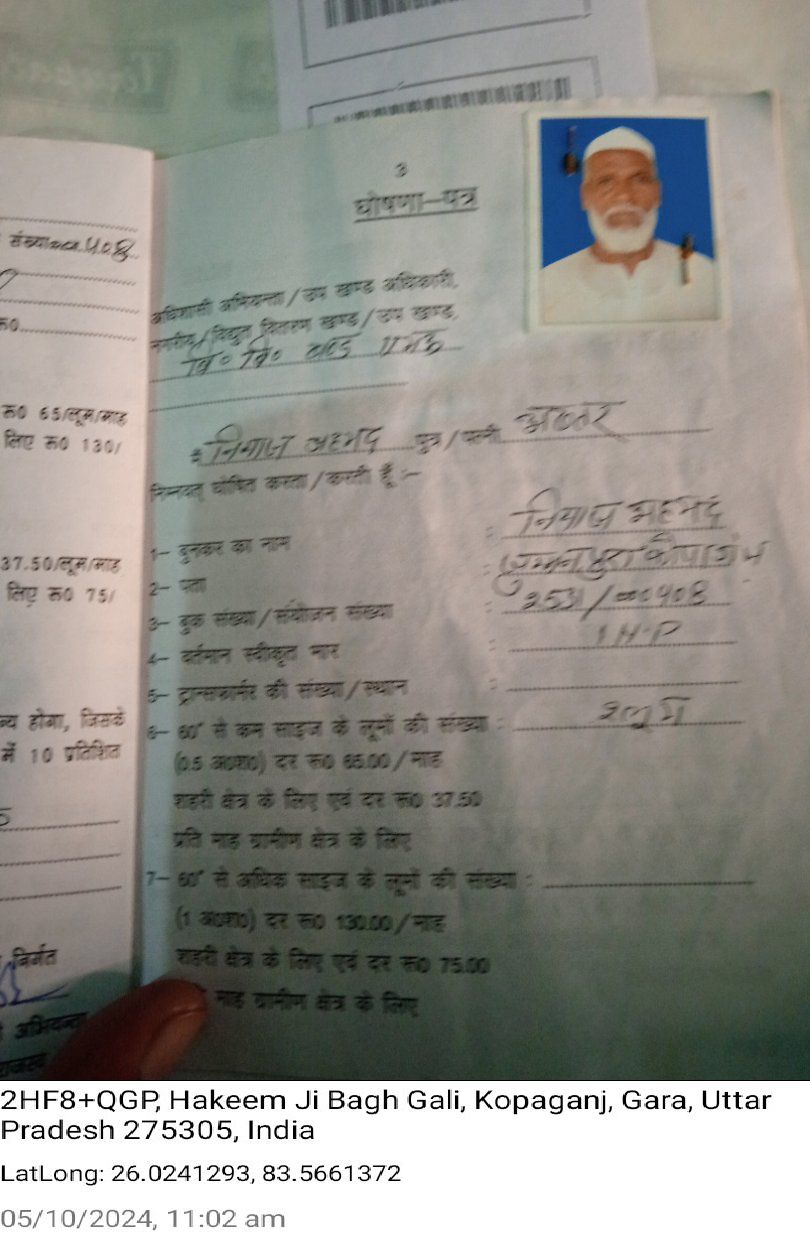 संख्या 408
रू0
रू0 65/लूम/माह
लिए रू0 130/
37.50/लूम/माह
लिए रू0 75/
न्य होगा, जिसके
में 10 प्रतिशित
निर्गत
अभियन्ता
3
घोषणा–पत्र
अधिशासी अभियन्ता/उप खण्ड अधिकारी,
नगरीय/विद्युत वितरण खण्ड/उप खण्ड,
वि० वि० खण्ड
मैं नियाज अहमद पुत्र/पत्नी अख्तर
निम्नवत् घोषित करता/करती हूँ :–
1– बुनकर का नाम : नियाज अहमद
2– पता : कोपागंज
3– बुक संख्या/संयोजन संख्या : 2531/000408
4– वर्तमान स्वीकृत भार : 1 H.P
5– ट्रान्सफार्मर की संख्या/स्थान :
6– 60" से कम साइज के लूमों की संख्या : 2 लूम
(0.5 अ0श0) दर रू0 65.00/माह
शहरी क्षेत्र के लिए एवं दर रू0 37.50
प्रति माह ग्रामीण क्षेत्र के लिए
7– 60" से अधिक साइज के लूमों की संख्या :
(1 अ0श0) दर रू0 130.00/माह
शहरी क्षेत्र के लिए एवं दर रू0 75.00
माह ग्रामीण क्षेत्र के लिए
2HF8+QGP, Hakeem Ji Bagh Gali, Kopaganj, Gara, Uttar
Pradesh 275305, India
LatLong: 26.0241293, 83.5661372
05/10/2024, 11:02 am